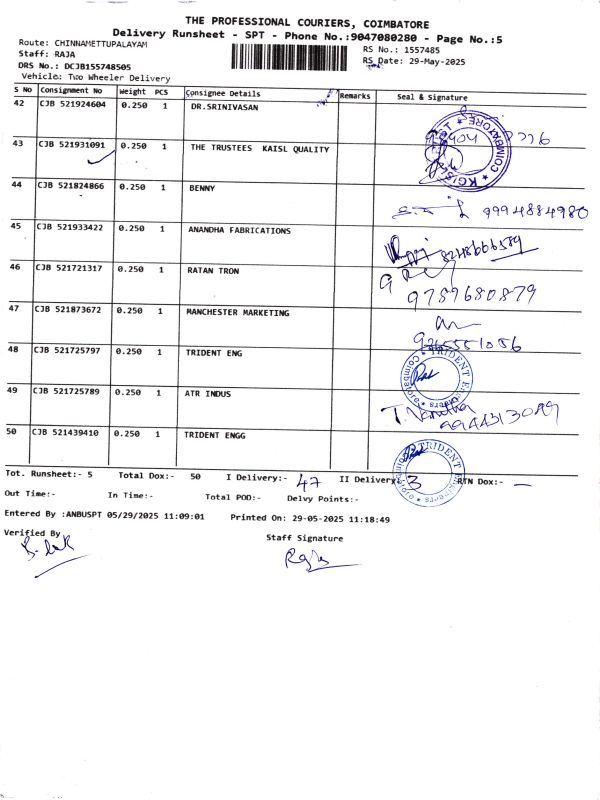 THE PROFESSIONAL COURIERS, COIMBATORE
Delivery Runsheet - SPT - Phone No.:9047080280 - Page No.:5
Route: CHINNAMETTUPALAYAM
RS No.: 1557485
Staff: RAJA
RS Date: 29-May-2025
DRS No.: DCJB155748505
Vehicle: Two Wheeler Delivery
S No Consignment No Weight PCS Consignee Details Remarks Seal & Signature
42 CJB 521924604 0.250 1 DR.SRINIVASAN
43 CJB 521931091 0.250 1 THE TRUSTEES KAISL QUALITY
COIMBATORE
44 CJB 521824866 0.250 1 BENNY
9994884980
45 CJB 521933422 0.250 1 ANANDHA FABRICATIONS
46 CJB 521721317 0.250 1 RATAN TRON
9789680879
47 CJB 521873672 0.250 1 MANCHESTER MARKETING
48 CJB 521725797 0.250 1 TRIDENT ENG
TRIDENT Coimbatore
49 CJB 521725789 0.250 1 ATR INDUS
50 CJB 521439410 0.250 1 TRIDENT ENGG
TRIDENT
Tot. Runsheet:- 5 Total Dox:- 50 I Delivery:- 47 II Delivery:- 3 RTN Dox:- —
Out Time:- In Time:- Total POD:- Delvy Points:-
Entered By :ANBUSPT 05/29/2025 11:09:01 Printed On: 29-05-2025 11:18:49
Verified By
Staff Signature